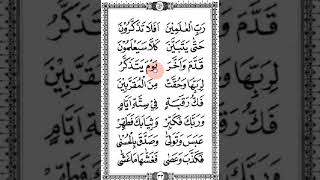 رَبِّ الْعٰلَمِيْنَ اَفَلَا تَذَكَّرُوْنَ
حَتّٰى يَتَبَيَّنَ كَلَّا سَيَعْلَمُوْنَ
قَدَّمَ وَاَخَّرَ يَوْمَ يَتَذَكَّرُ
لِرَبِّهَا وَحُقَّتْ مِنَ الْمُقَرَّبِيْنَ
فَكُّ رَقَبَةٍ فِيْ سِتَّةِ اَيَّامٍ
وَرَبَّكَ فَكَبِّرْ وَثِيَابَكَ فَطَهِّرْ
عَبَسَ وَتَوَلّٰى وَصَدَّقَ بِالْحُسْنٰى
فَكَذَّبَ وَعَصٰى فَغَشّٰهَا مَا غَشّٰى